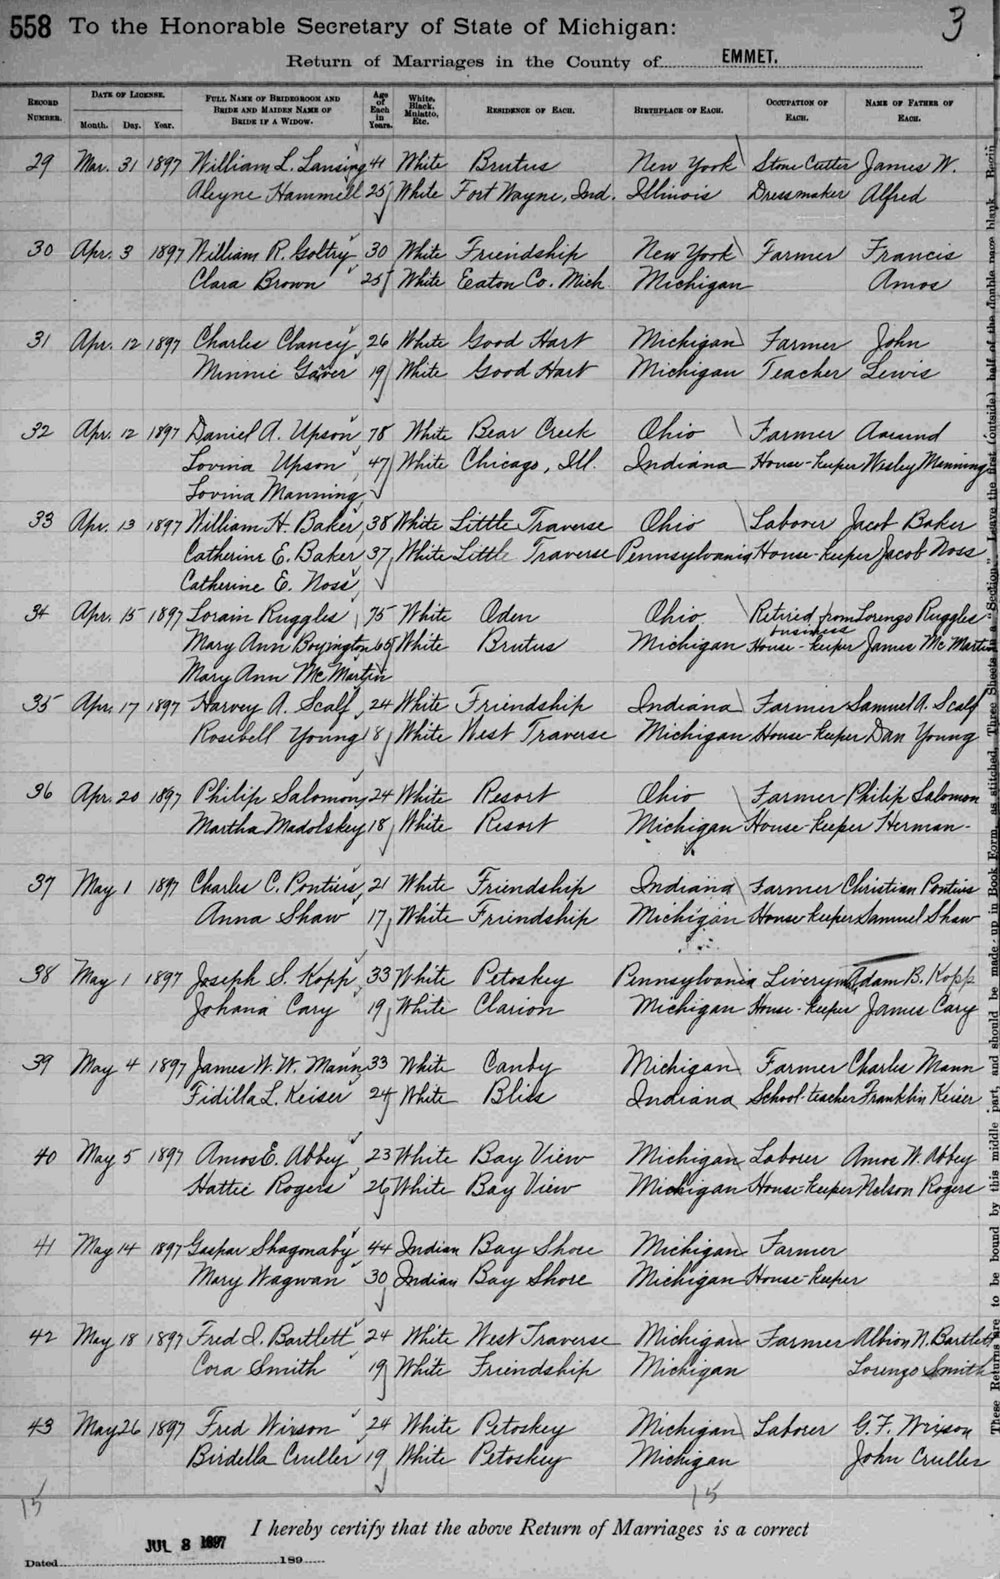 558 To the Honorable Secretary of State of Michigan: 3
Return of Marriages in the County of EMMET.
RECORD NUMBER. DATE OF LICENSE. Month. Day. Year. FULL NAME OF BRIDEGROOM AND BRIDE AND MAIDEN NAME OF BRIDE IF A WIDOW. Age of Each in Years. White, Black, Mulatto, Etc. RESIDENCE OF EACH. BIRTHPLACE OF EACH. OCCUPATION OF EACH. NAME OF FATHER OF EACH.
29 Mar. 31 1897 William L. Lansing 41 White Brutus New York Stone Cutter James W.
Aleyne Hammell 25 White Fort Wayne, Ind. Illinois Dressmaker Alfred
30 Apr. 3 1897 William R. Goltry 30 White Friendship New York Farmer Francis
Clara Brown 25 White Eaton Co. Mich Michigan Amos
31 Apr. 12 1897 Charles Clancy 26 White Good Hart Michigan Farmer John
Minnie Gaver 19 White Good Hart Michigan Teacher Lewis
32 Apr. 12 1897 Daniel A. Upson 78 White Bear Creek Ohio Farmer
Lovina Upson 47 White Chicago, Ill. Indiana House-keeper Wesley Manning
Lovina Manning
33 Apr. 13 1897 William H. Baker 38 White Little Traverse Ohio Laborer Jacob Baker
Catherine E. Baker 37 White Little Traverse Pennsylvania House-keeper Jacob Noss
Catherine E. Noss
34 Apr. 15 1897 Lorain Ruggles 75 White Oden Ohio Retired from business Lorenzo Ruggles
Mary Ann Boyington 65 White Brutus Michigan House-keeper James McMartin
Mary Ann McMartin
35 Apr. 17 1897 Harvey A. Scalf 24 White Friendship Indiana Farmer Samuel A. Scalf
Rosebell Young 18 White West Traverse Michigan House-keeper Dan Young
36 Apr. 20 1897 Philip Salomon 24 White Resort Ohio Farmer Philip Salomon
Martha Madolskey 18 White Resort Michigan House-keeper Herman
37 May 1 1897 Charles C. Pontius 21 White Friendship Indiana Farmer Christian Pontius
Anna Shaw 17 White Friendship Michigan House keeper Samuel Shaw
38 May 1 1897 Joseph S. Kopp 33 White Petoskey Pennsylvania Liveryman Adam B. Kopp
Johana Cary 19 White Clarion Michigan House-keeper James Cary
39 May 4 1897 James W. W. Mann 33 White Canby Michigan Farmer Charles Mann
Fidilla L. Keiser 24 White Bliss Indiana School-teacher Franklin Keiser
40 May 5 1897 Amos E. Abbey 23 White Bay View Michigan Laborer Amos W. Abbey
Hattie Rogers 26 White Bay View Michigan House-keeper Nelson Rogers
41 May 14 1897 Gaspar Shagonaby 44 Indian Bay Shore Michigan Farmer
Mary Wagwan 30 Indian Bay Shore Michigan House-keeper
42 May 18 1897 Fred I. Bartlett 24 White West Traverse Michigan Farmer Albion N. Bartlett
Cora Smith 19 White Friendship Michigan Lorenzo Smith
43 May 26 1897 Fred Wixson 24 White Petoskey Michigan Laborer G. F. Wixson
Birdella Cruller 19 White Petoskey Michigan John Cruller
15 15
I hereby certify that the above Return of Marriages is a correct
JUL 8 1897
Dated 189
These Returns are to be bound by this middle part, and should be made up in Book Form, as stitched. Three Sheets in a "Section." Leave the first (outside) half of the double page blank. Begin